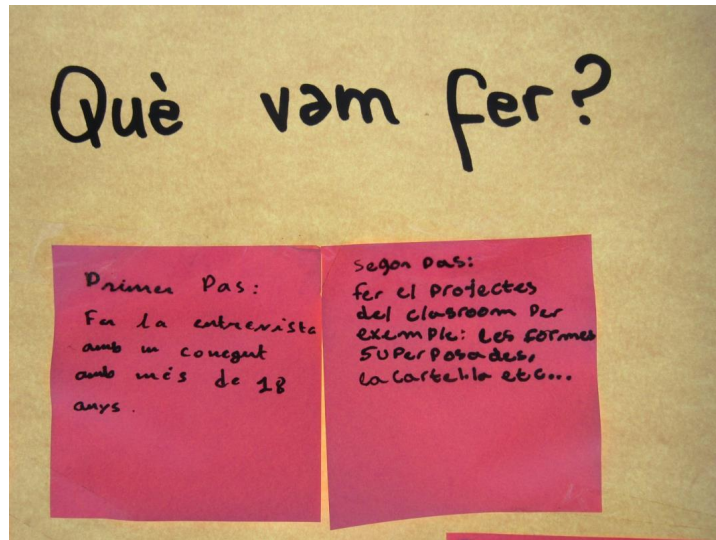 Què vam fer?
Primer Pas:
Fer la entrevista
amb un conegut
amb més de 18
anys.
Segon Pas:
fer el Projectes
del clasroom Per
exemPle: les formes
SUPerPosades,
la cartel·la etc...